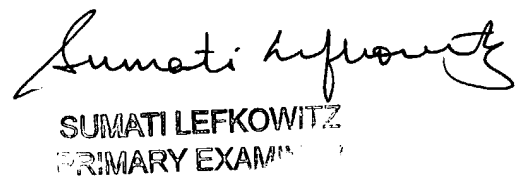 Sumati Lefkowitz
SUMATI LEFKOWITZ
PRIMARY